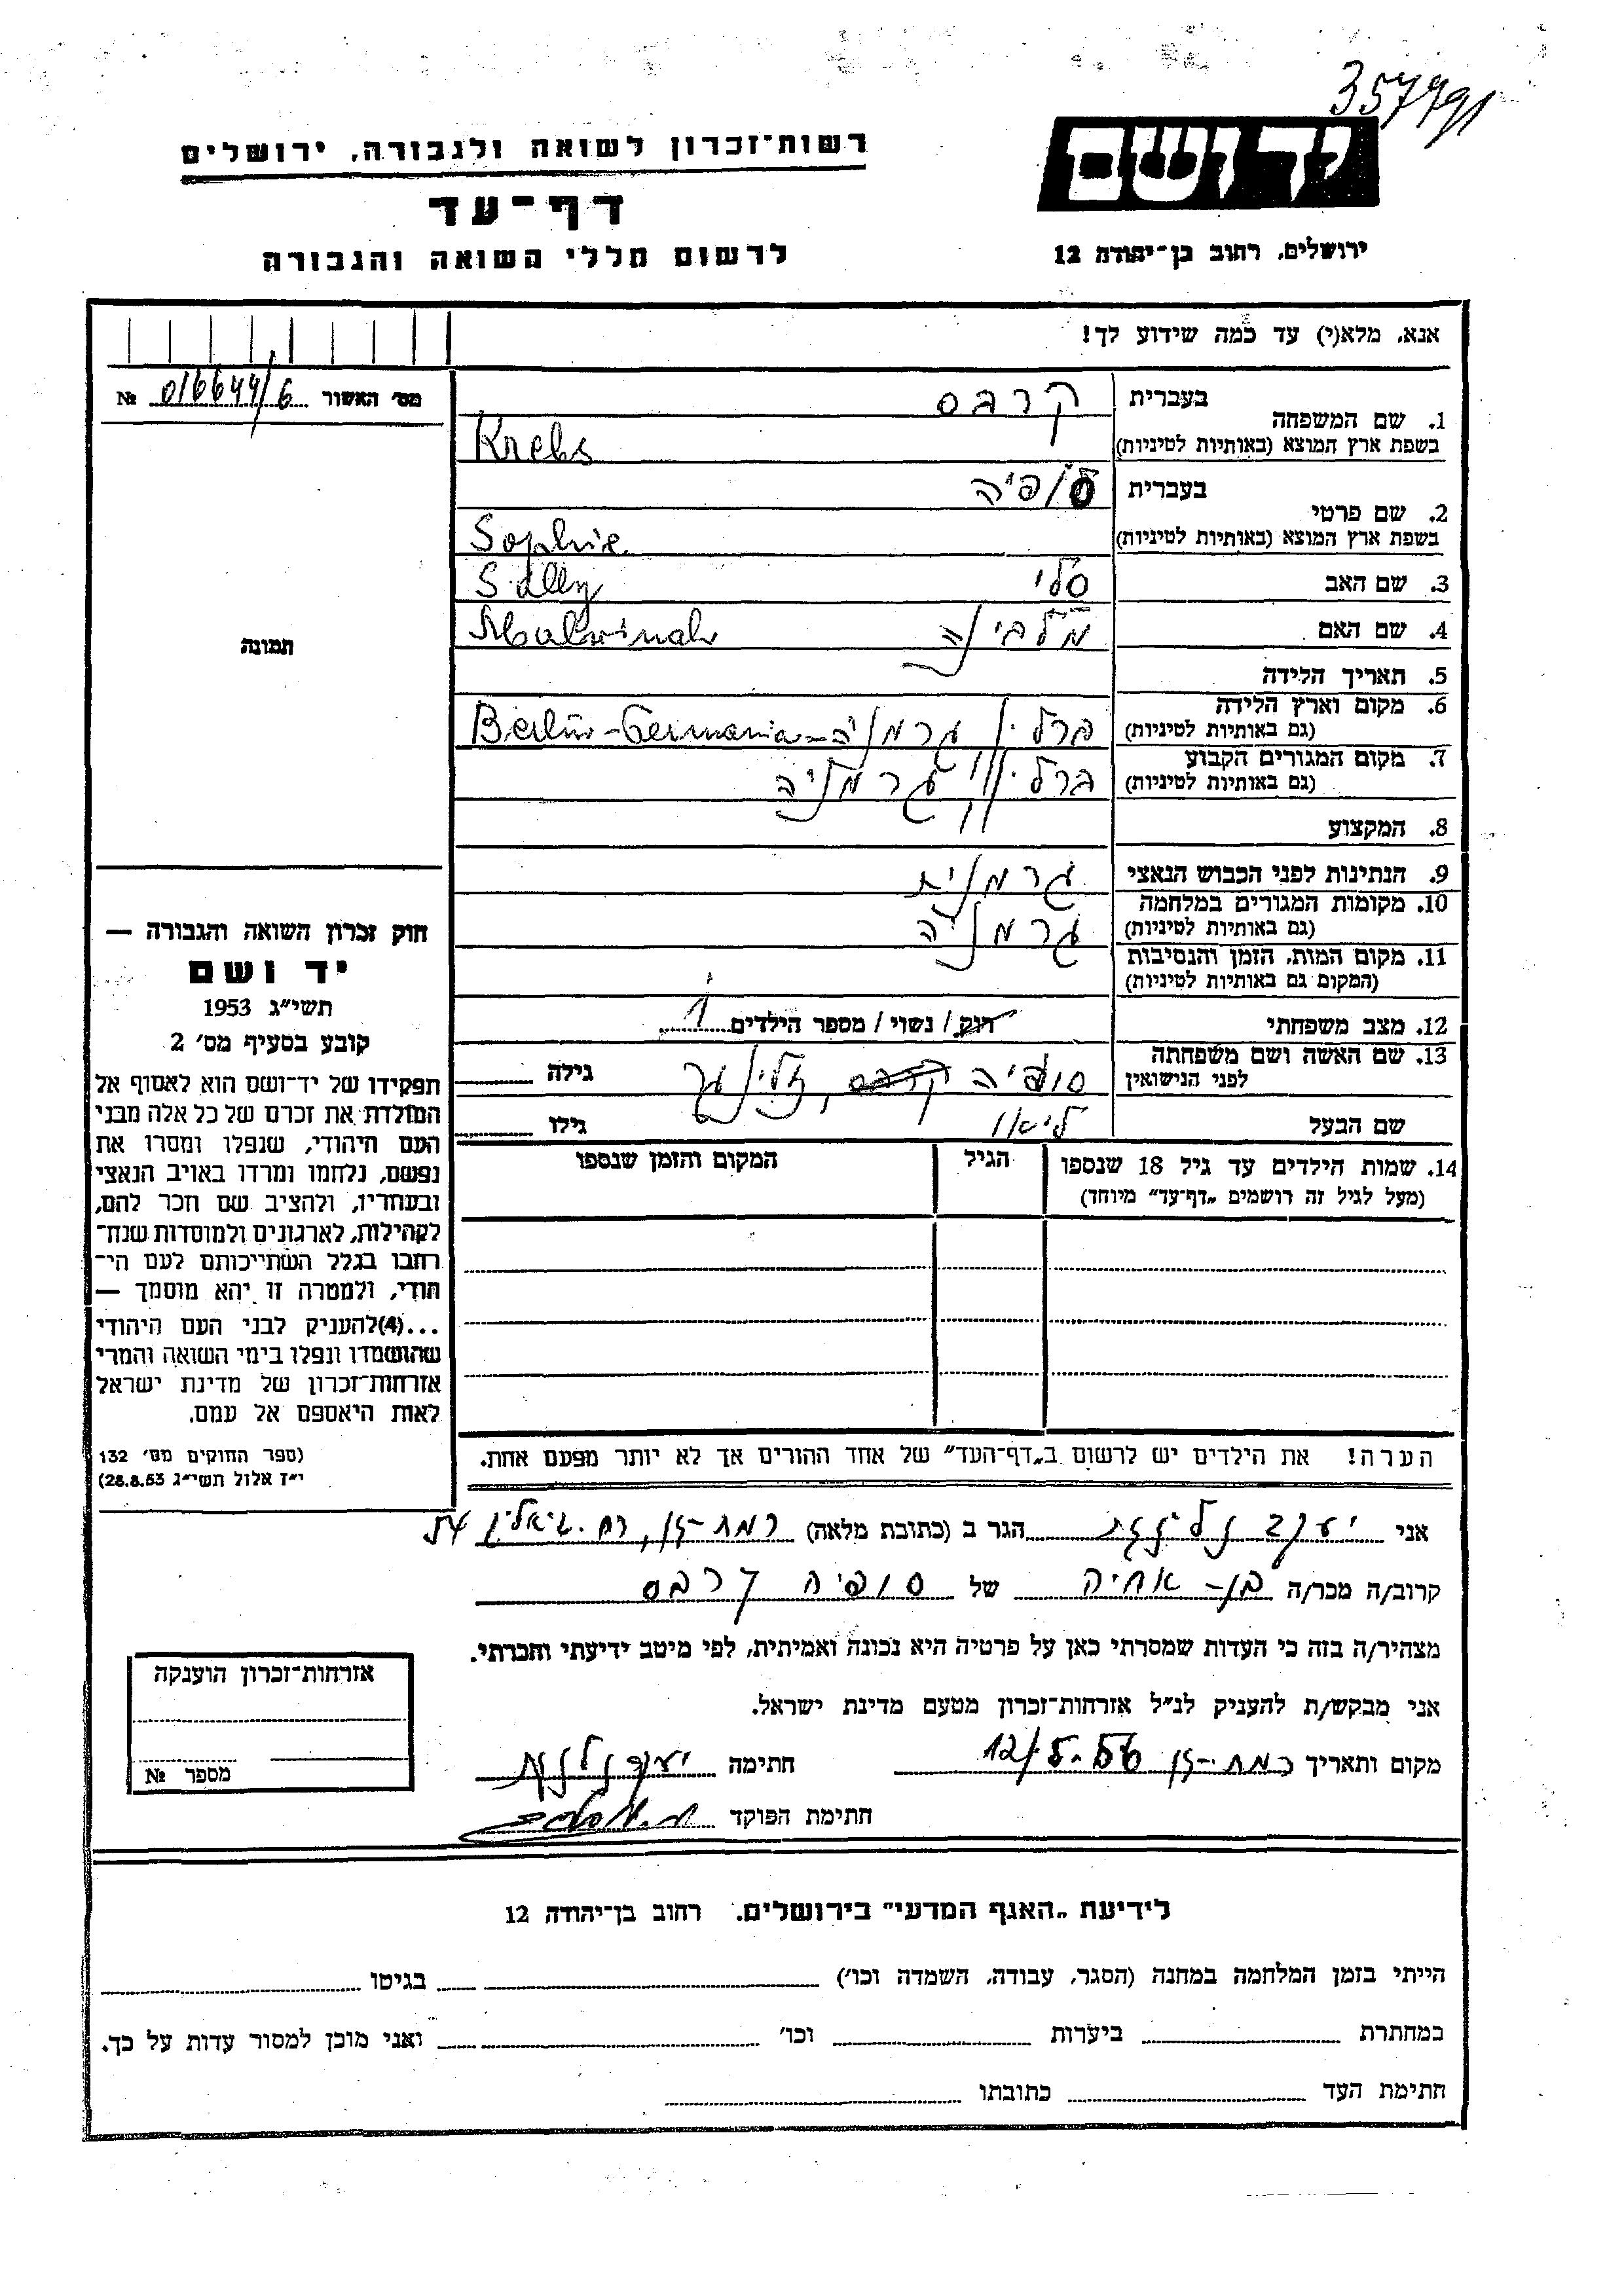 357991
רשות־זכרון לשואה ולגבורה, ירושלים
יד ושם
דף־עד
לרשום חללי השואה והגבורה
ירושלים, רחוב בן־יהודה 12
אנא, מלא(י) עד כמה שידוע לך!
מס׳ האשור 016644/6 №
1. שם המשפחה בעברית קרבס
בשפת ארץ המוצא (באותיות לטיניות) Krebs
2. שם פרטי בעברית סופיה
בשפת ארץ המוצא (באותיות לטיניות) Sophie
3. שם האב סלי Sally
4. שם האם מלבינה Malwinah
תמונה
5. תאריך הלידה
6. מקום וארץ הלידה ברלין גרמניה - Berlin-Germania
(גם באותיות לטיניות)
7. מקום המגורים הקבוע ברלין, גרמניה
(גם באותיות לטיניות)
8. המקצוע
9. הנתינות לפני הכבוש הנאצי גרמנית
10. מקומות המגורים במלחמה גרמניה
(גם באותיות לטיניות)
11. מקום המות, הזמן והנסיבות
(המקום גם באותיות לטיניות)
12. מצב משפחתי רוק / נשוי / מספר הילדים 1
13. שם האשה ושם משפחתה סופיה קרבס, זלינגר גילה
לפני הנישואין
שם הבעל ליאו גילו
14. שמות הילדים עד גיל 18 שנספו הגיל המקום והזמן שנספו
(מעל לגיל זה רושמים „דף־עד״ מיוחד)
חוק זכרון השואה והגבורה —
יד ושם
תשי״ג 1953
קובע בסעיף מס׳ 2
תפקידו של יד־ושם הוא לאסוף אל
המולדת את זכרם של כל אלה מבני
העם היהודי, שנפלו ומסרו את
נפשם, נלחמו ומרדו באויב הנאצי
ובעוזריו, ולהציב שם וזכר להם,
לקהילות, לארגונים ולמוסדות שנח־
רבו בגלל השתייכותם לעם הי־
הודי, ולמטרה זו יהא מוסמך —
...(4)להעניק לבני העם היהודי
שהושמדו ונפלו בימי השואה והמרי
אזרחות־זכרון של מדינת ישראל
לאות היאספם אל עמם.
(ספר החוקים מס׳ 132
י״ז אלול תשי״ג 28.8.53)
הערה! את הילדים יש לרשום ב„דף־העד״ של אחד ההורים אך לא יותר מפעם אחת.
אני יעקב הגר ב (כתובת מלאה) רמת-גן, רח. ביאליק 54
קרוב/ה מכר/ה בן-אחיה של סופיה קרבס
מצהיר/ה בזה כי העדות שמסרתי כאן על פרטיה היא נכונה ואמיתית, לפי מיטב ידיעתי והכרתי.
אני מבקש/ת להעניק לנ״ל אזרחות־זכרון מטעם מדינת ישראל.
מקום ותאריך רמת-גן 12/5.56 חתימה
חתימת הפוקד
אזרחות־זכרון הוענקה
מספר №
לידיעת „האגף המדעי״ בירושלים. רחוב בן־יהודה 12
הייתי בזמן המלחמה במחנה (הסגר, עבודה, השמדה וכו׳) בגיטו
במחתרת ביערות וכו׳ ואני מוכן למסור עדות על כך.
חתימת העד כתובתו